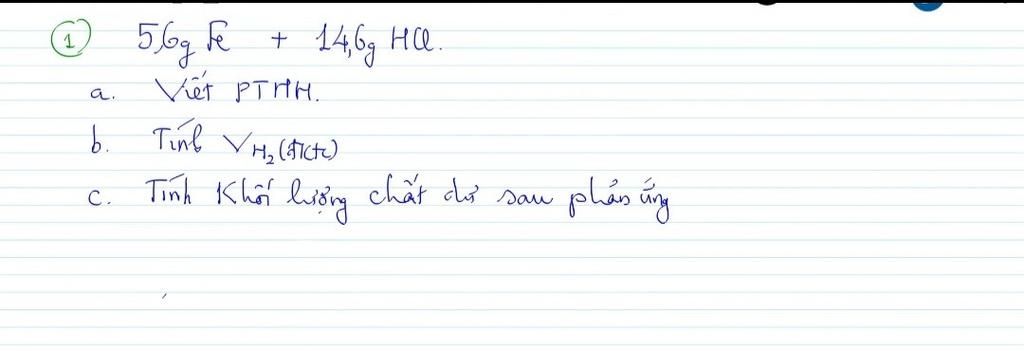 1 5,6g Fe + 14,6g HCl.
a. Viết PTHH.
b. Tính V H₂ (đktc)
c. Tính khối lượng chất dư sau phản ứng